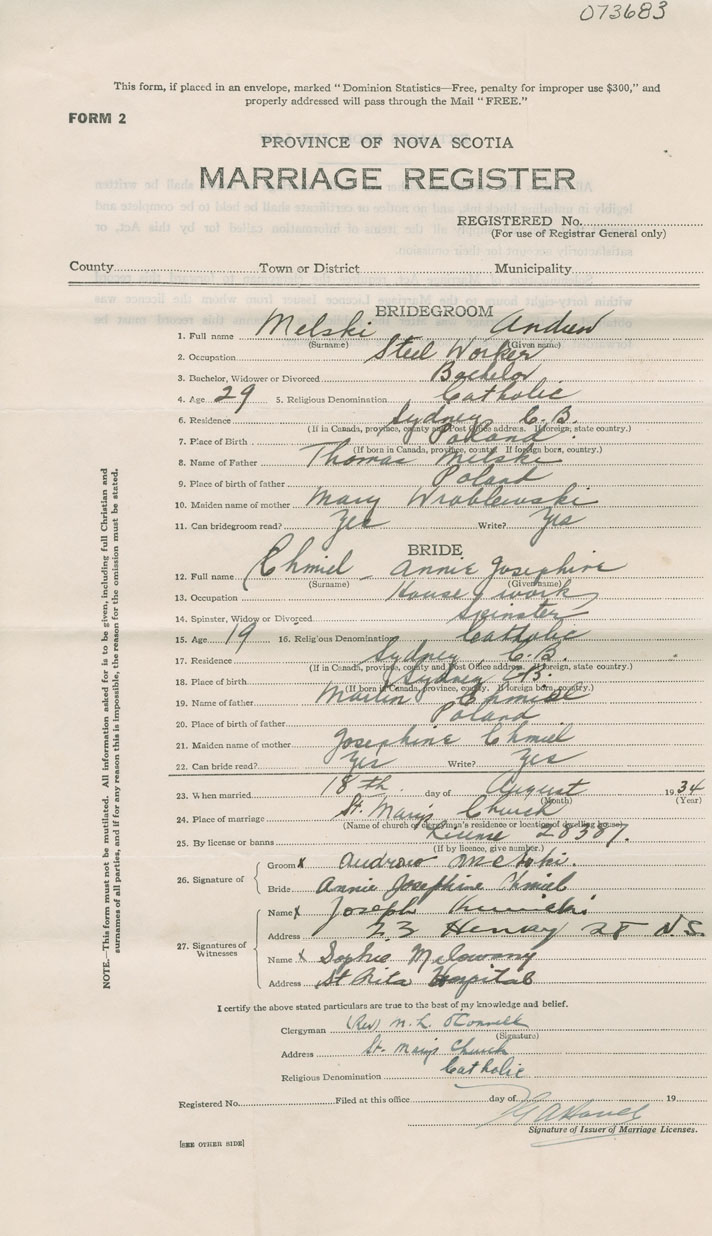 073683
This form, if placed in an envelope, marked "Dominion Statistics—Free, penalty for improper use $300," and
properly addressed will pass through the Mail "FREE."
FORM 2
PROVINCE OF NOVA SCOTIA
MARRIAGE REGISTER
REGISTERED No.
(For use of Registrar General only)
County Town or District Municipality
BRIDEGROOM
1. Full name Melski Andrew
(Surname) (Given name)
2. Occupation Steel Worker
3. Bachelor, Widower or Divorced Bachelor
4. Age 29 5. Religious Denomination Catholic
6. Residence Sydney C.B.
(If in Canada, province, county and Post Office address. If foreign, state country.)
7. Place of Birth Poland
(If born in Canada, province, county. If foreign born, country.)
8. Name of Father Thomas Melski
9. Place of birth of father Poland
10. Maiden name of mother Mary Wroblewski
11. Can bridegroom read? Yes Write? Yes
BRIDE
12. Full name Chmiel Annie Josephine
(Surname) (Given name)
13. Occupation House work
14. Spinster, Widow or Divorced Spinster
15. Age 19 16. Religious Denomination Catholic
17. Residence Sydney C.B.
(If in Canada, province, county and Post Office address. If foreign, state country.)
18. Place of birth Sydney C.B.
(If born in Canada, province, county. If foreign born, country.)
19. Name of father Martin Chmiel
20. Place of birth of father Poland
21. Maiden name of mother Josephine Chmiel
22. Can bride read? Yes Write? Yes
23. When married 18th day of August 1934
(Month) (Year)
24. Place of marriage St. Mary's Church
(Name of church or clergyman's residence or location of dwelling house)
25. By license or banns License 28387.
(If by licence, give number.)
26. Signature of
Groom x Andrew Melski.
Bride Annie Josephine Chmiel
27. Signatures of Witnesses
Name x Joseph
Address 23 Henry St N.S.
Name x Sophie
Address St Rita Hospital
I certify the above stated particulars are true to the best of my knowledge and belief.
Clergyman (Rev) M. L. O'Connell
(Signature)
Address St. Mary's Church
Religious Denomination Catholic
Registered No. Filed at this office day of 19
Signature of Issuer of Marriage Licenses.
[SEE OTHER SIDE]
NOTE.—This form must not be mutilated. All information asked for is to be given, including full Christian and
surnames of all parties, and if for any reason this is impossible, the reason for the omission must be stated.